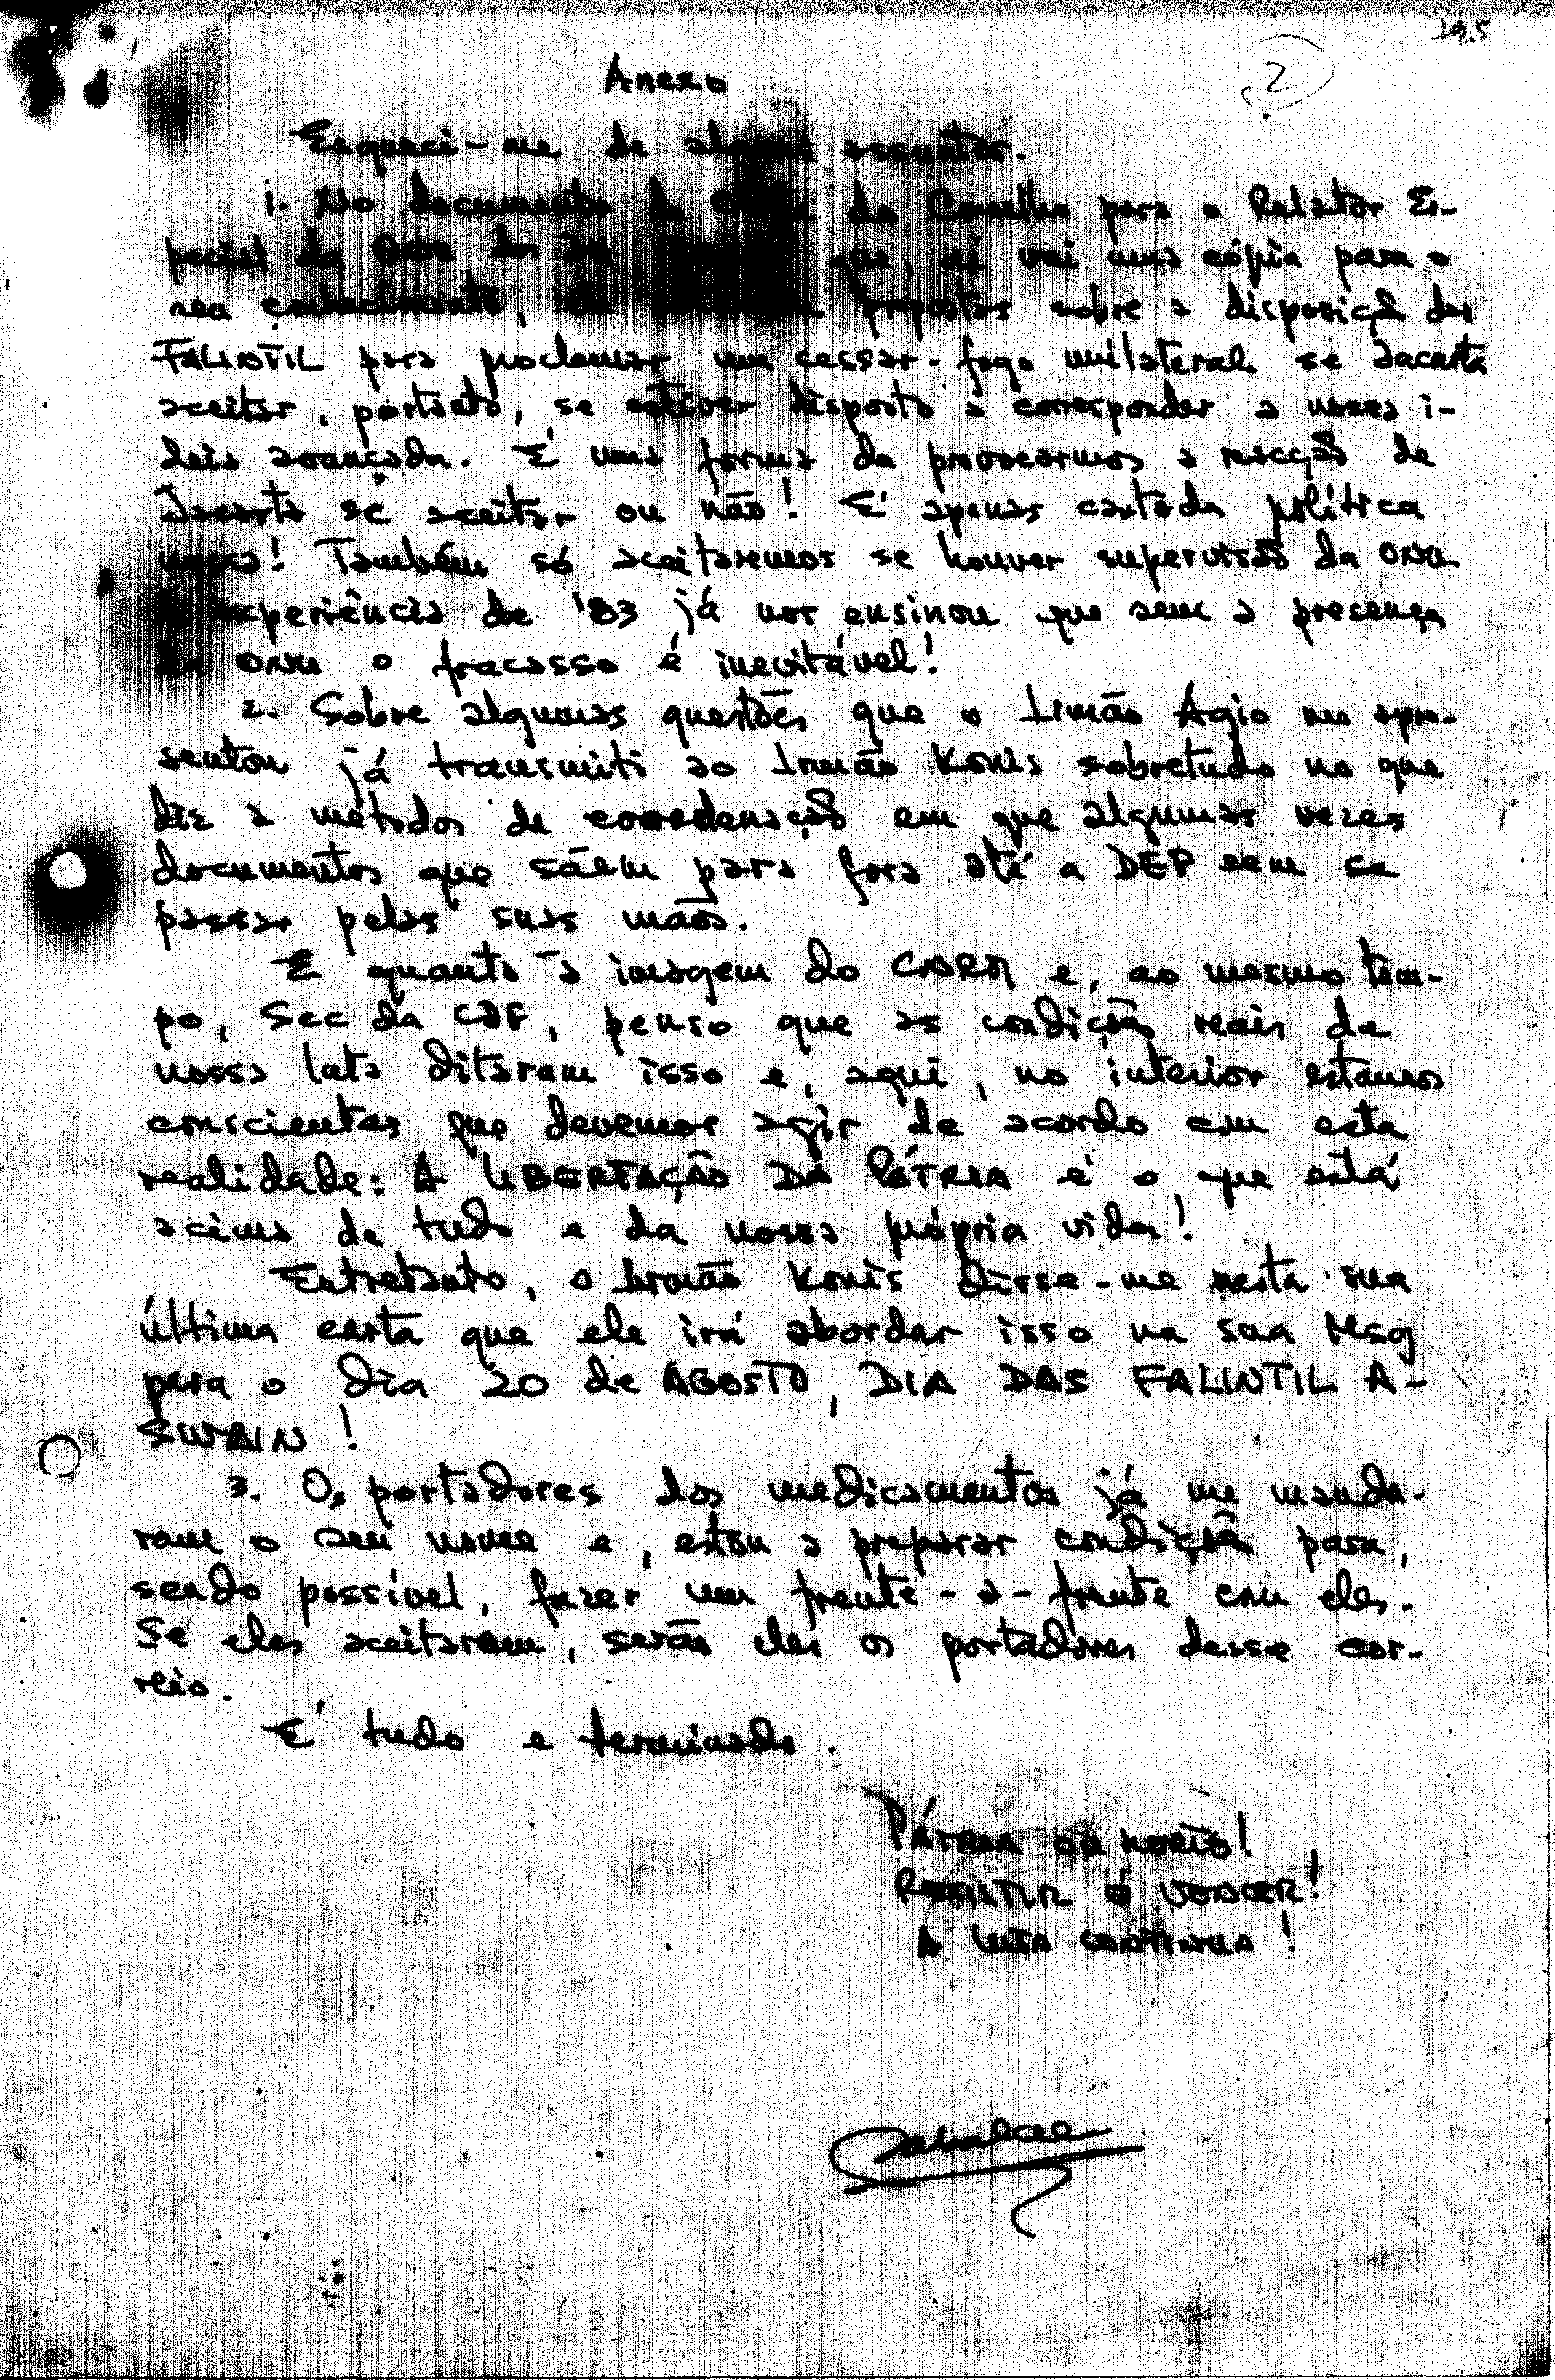 19.5
2
Anexo
Esqueci-me de alguns assuntos.
1. No documento do da Conselho para o Relator Es-
pecial da ONU dos que, aí vai uma cópia para o
seu conhecimento, propostas sobre a disposição das
FALINTIL para proclamar um cessar-fogo unilateral se Jacarta
aceitar, portanto, se estiver disposto a corresponder a nossa i-
deia avançada. É uma forma de provocarmos a reacção de
Jacarta se aceitar ou não! É apenas cartada política
nossa! Também só aceitaremos se houver supervisão da ONU.
A experiência de '83 já nos ensinou que sem a presença
da ONU o fracasso é inevitável!
2. Sobre algumas questões que o Irmão Agio me apre-
sentou já transmiti ao Irmão Konis sobretudo no que
diz a métodos de coordenação em que algumas vezes
documentos que sáem para fora até a DEP sem se
passar pelas suas mãos.
E quanto à imagem do CNRM e, ao mesmo tem-
po, Sec da CDF, penso que as condições reais da
nossa luta ditaram isso e, aqui, no interior estamos
conscientes que devemos agir de acordo com esta
realidade: A LIBERTAÇÃO DA PÁTRIA é o que está
acima de tudo e da nossa própria vida!
Entretanto, o Irmão Konis disse-me nesta sua
última carta que ele irá abordar isso na sua Msg
para o dia 20 de AGOSTO, DIA DAS FALINTIL A-
SWAIN!
3. Os portadores dos medicamentos já me manda-
ram o seu nome e, estou a preparar condições para,
sendo possível, fazer um frente-a-frente com eles.
Se eles aceitarem, serão eles os portadores desse cor-
reio.
É tudo e terminado.
PÁTRIA OU MORTE!
RESISTIR É VENCER!
A LUTA CONTINUA!